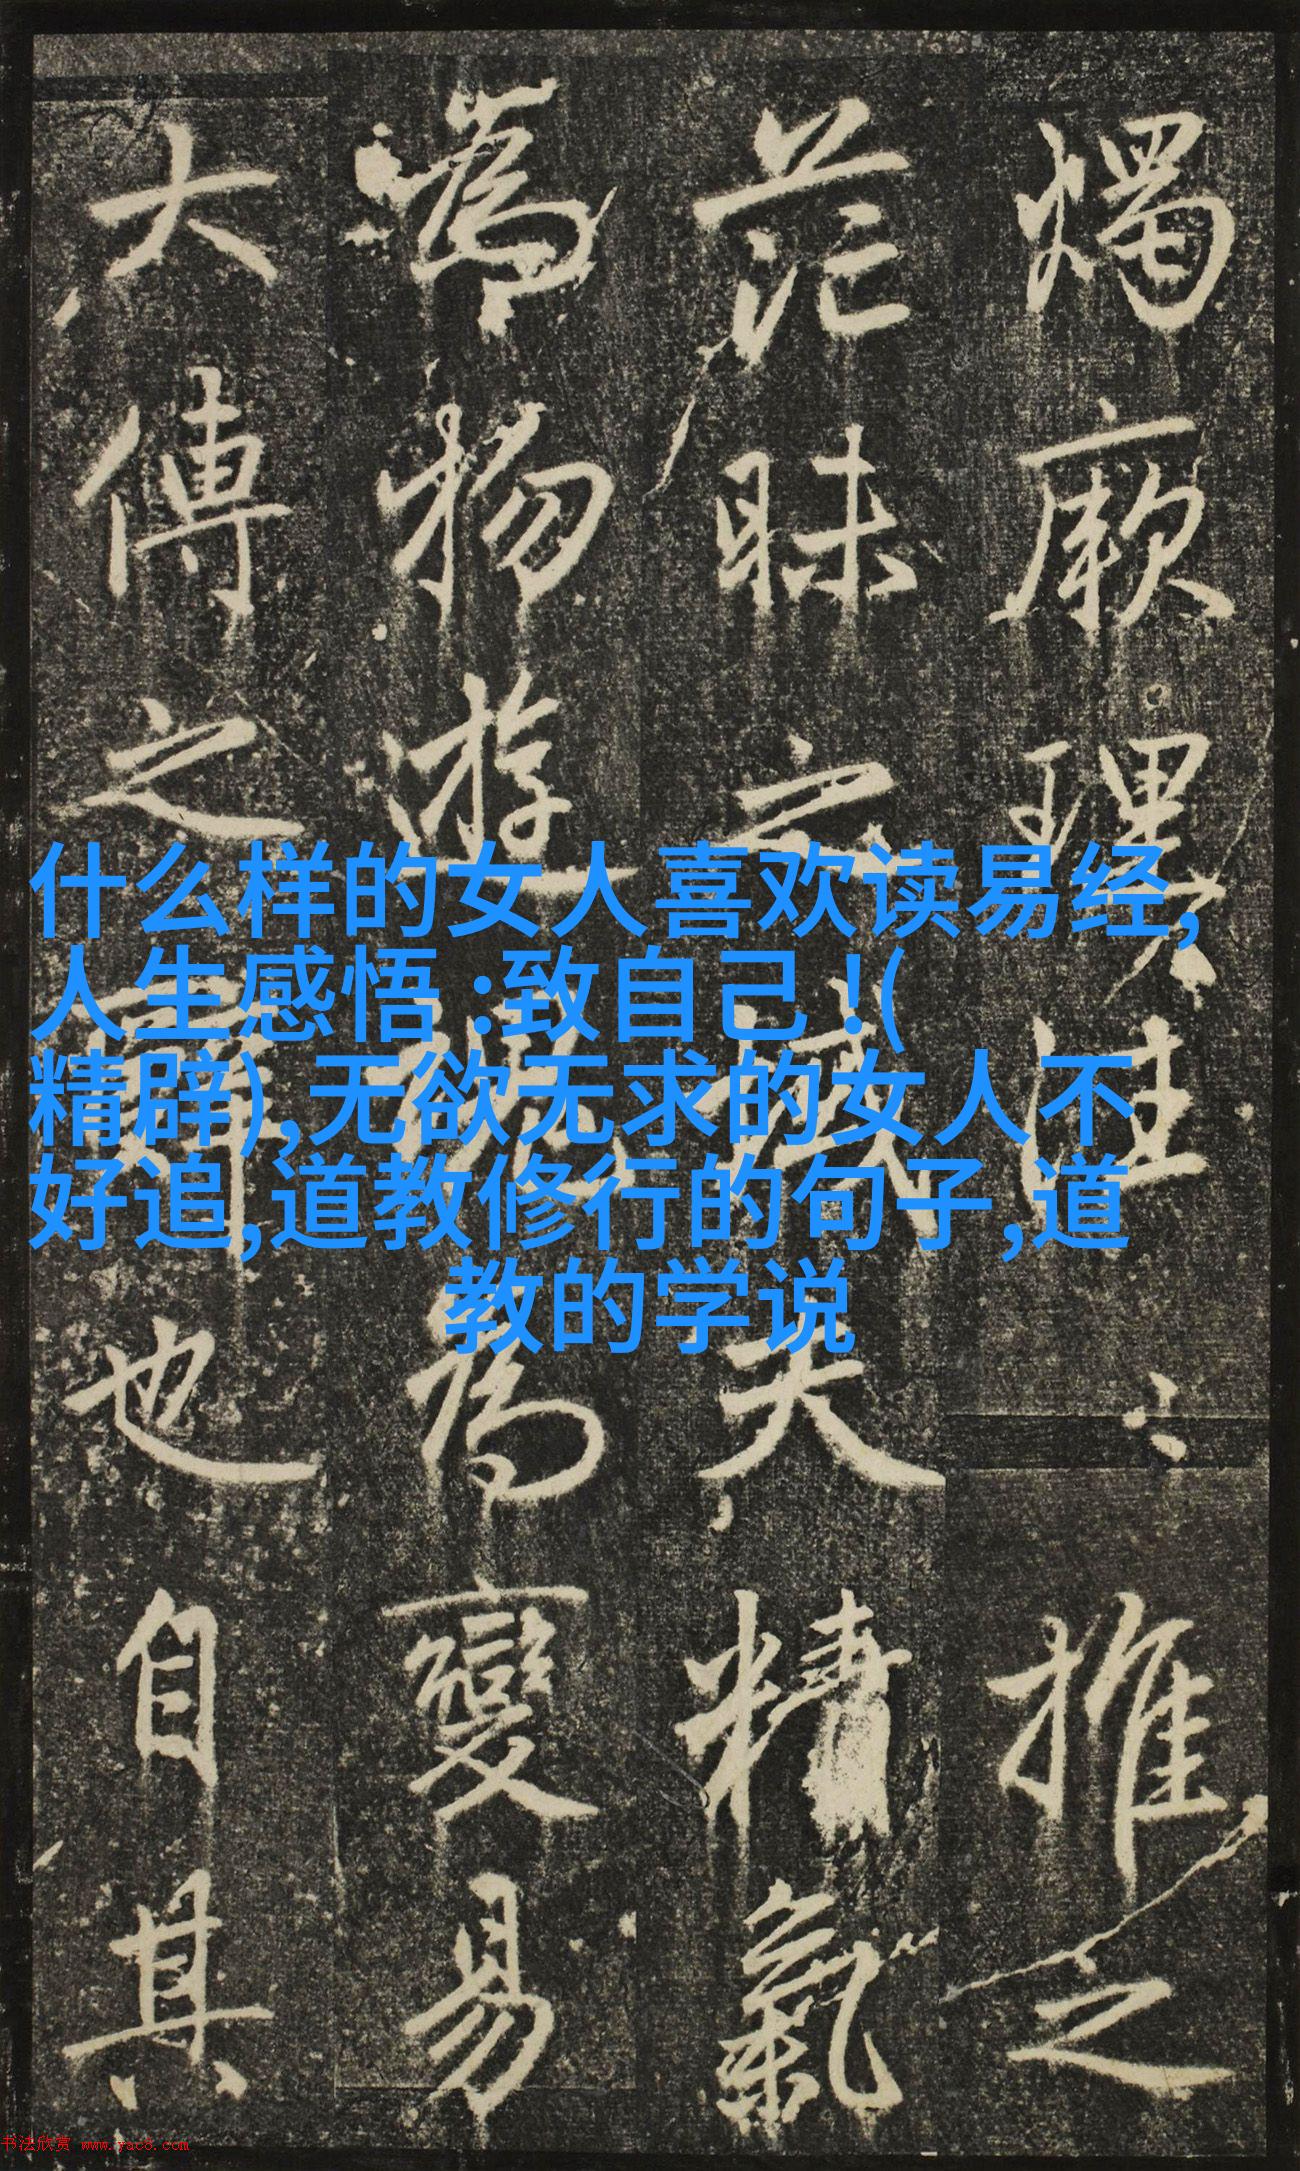 燭厥推之
茫昧之域夫精氣
為物遊魂為變易
大傳之辭也自其
什么样的女人喜欢读易经,
人生感悟:致自己!(
精辟),无欲无求的女人不
好追,道教修行的句子,道
教的学说
书法欣赏 www.yac8.com